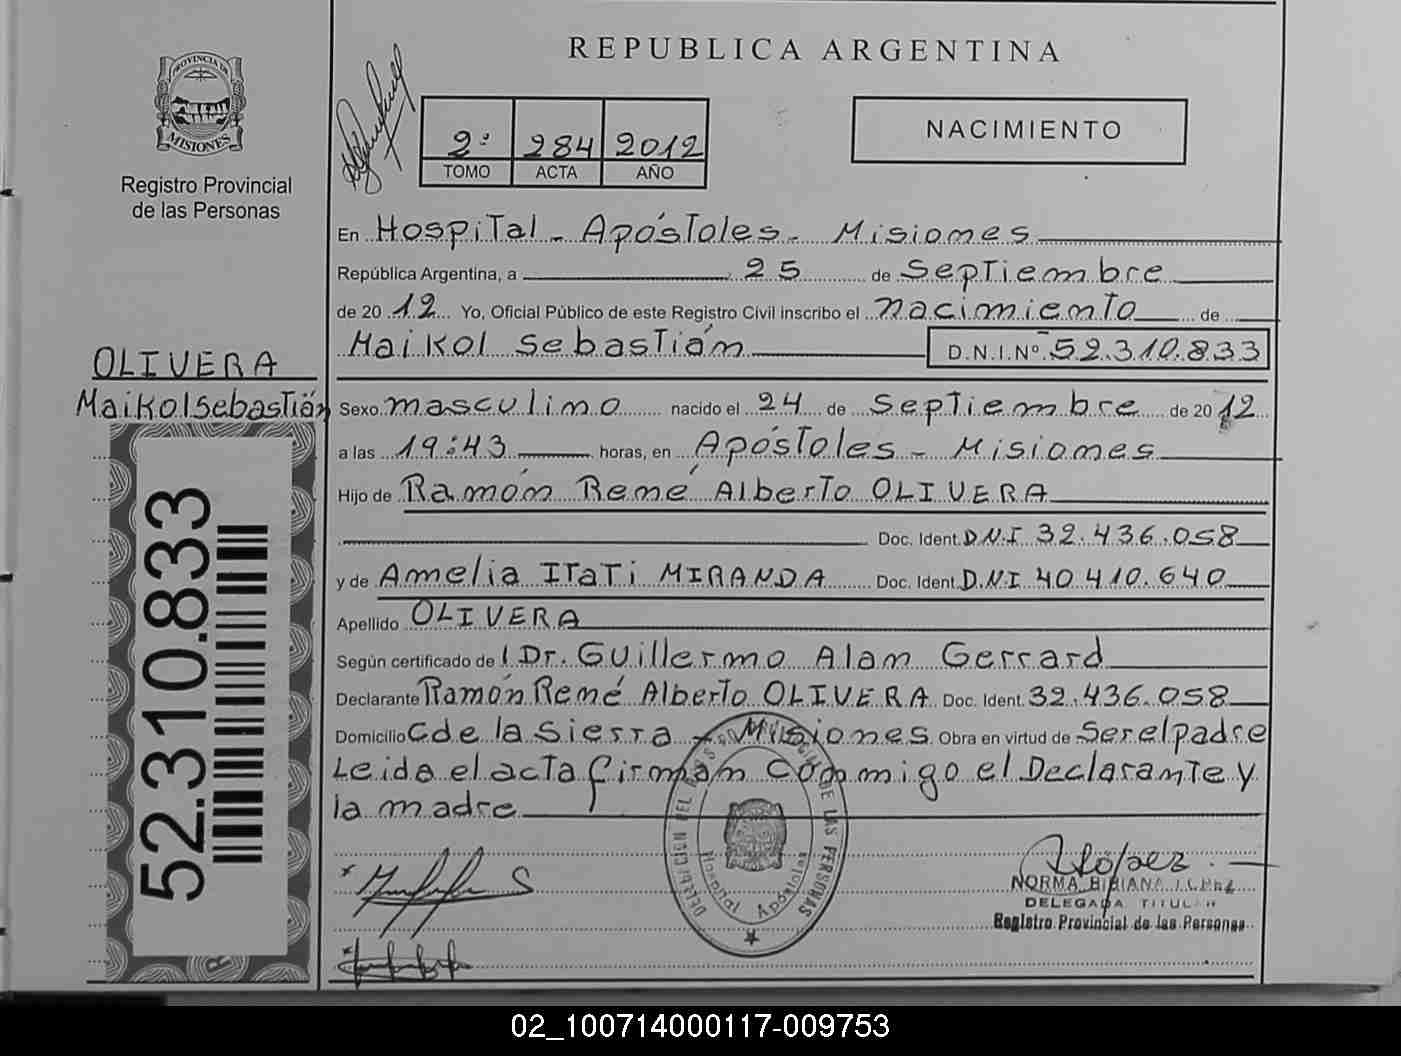 REPUBLICA ARGENTINA
PROVINCIA DE
MISIONES
Registro Provincial
de las Personas
2º 284 2012
TOMO ACTA AÑO
NACIMIENTO
En Hospital - Apóstoles - Misiones
República Argentina, a 25 de Septiembre
de 2012 Yo, Oficial Público de este Registro Civil inscribo el nacimiento de
Maikol Sebastián D.N.I.Nº 52.310.833
OLIVERA
Maikol Sebastián
Sexo masculino nacido el 24 de Septiembre de 2012
a las 19:43 horas, en Apóstoles - Misiones
Hijo de Ramón René Alberto OLIVERA
Doc. Ident. D.N.I 32.436.058
y de Amelia ITaTi MIRANDA Doc. Ident. D.N.I 40.410.640
Apellido OLIVERA
Según certificado de Dr. Guillermo Alan Gerrard
Declarante Ramón René Alberto OLIVERA Doc. Ident. 32.436.058
Domicilio C de la Sierra - Misiones Obra en virtud de Ser el padre
Leida el acta firman conmigo el Declarante y
la madre
52.310.833
DE LAS PERSONAS
Hospital Apóstoles
NORMA BIBIANA LOPEZ
DELEGADA TITULAR
Registro Provincial de las Personas
02_100714000117-009753